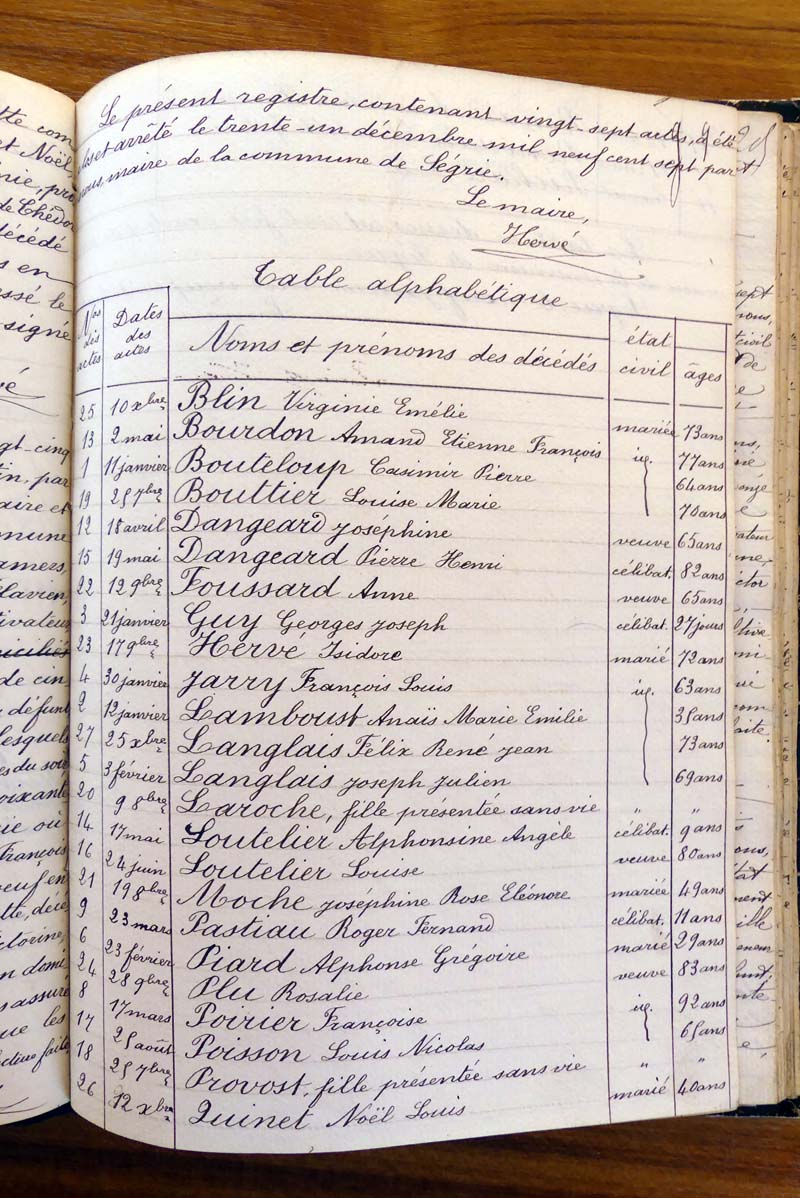 tte com
et Noël
nie, pro
de Chédor
décédé
s en
ssé le
signé
vé
gt-cinq
tin, par
aire et
mmune
amers,
lavien,
tivateur
iciliés
de cin
défunt
lesquels
es du soir
oixante
ie où
François
euf en
tte, décé
ctorine,
n domi
s assuré
que les
Le présent registre, contenant vingt-sept actes, a été
clos et arrêté le trente-un décembre mil neuf cent sept par
nous, maire de la commune de Ségrie.
Le maire,
Hervé
Table alphabétique
Nos des actes Dates des actes Noms et prénoms des décédés état civil âges
25 10 xbre Blin Virginie Emélie mariée 73 ans
13 2 mai Bourdon Amand Etienne François id. 77 ans
1 11 janvier Bouteloup Casimir Pierre 64 ans
19 25 7bre Bouttier Louise Marie 70 ans
12 18 avril Dangeard Joséphine veuve 65 ans
15 19 mai Dangeard Pierre Henri célibat. 82 ans
22 12 9bre Foussard Anne veuve 65 ans
3 21 janvier Guy Georges Joseph célibat. 27 jours
23 17 9bre Hervé Isidore marié 72 ans
4 30 janvier Jarry François Louis id. 63 ans
2 12 janvier Lamboust Anaïs Marie Emilie 35 ans
27 25 xbre Langlais Félix René Jean 73 ans
5 3 février Langlais Joseph Julien 69 ans
20 9 8bre Laroche, fille présentée sans vie " "
14 17 mai Loutelier Alphonsine Angèle célibat. 9 ans
16 24 juin Loutelier Louise veuve 80 ans
21 19 8bre Moche Joséphine Rose Eléonore mariée 49 ans
9 23 mars Pastiau Roger Fernand célibat. 11 ans
6 23 février Piard Alphonse Grégoire marié 29 ans
24 28 9bre Plu Rosalie veuve 83 ans
8 17 mars Poirier Françoise id. 92 ans
17 25 août Poisson Louis Nicolas 65 ans
18 25 7bre Provost, fille présentée sans vie " "
26 12 xbre Quinet Noël Louis marié 40 ans